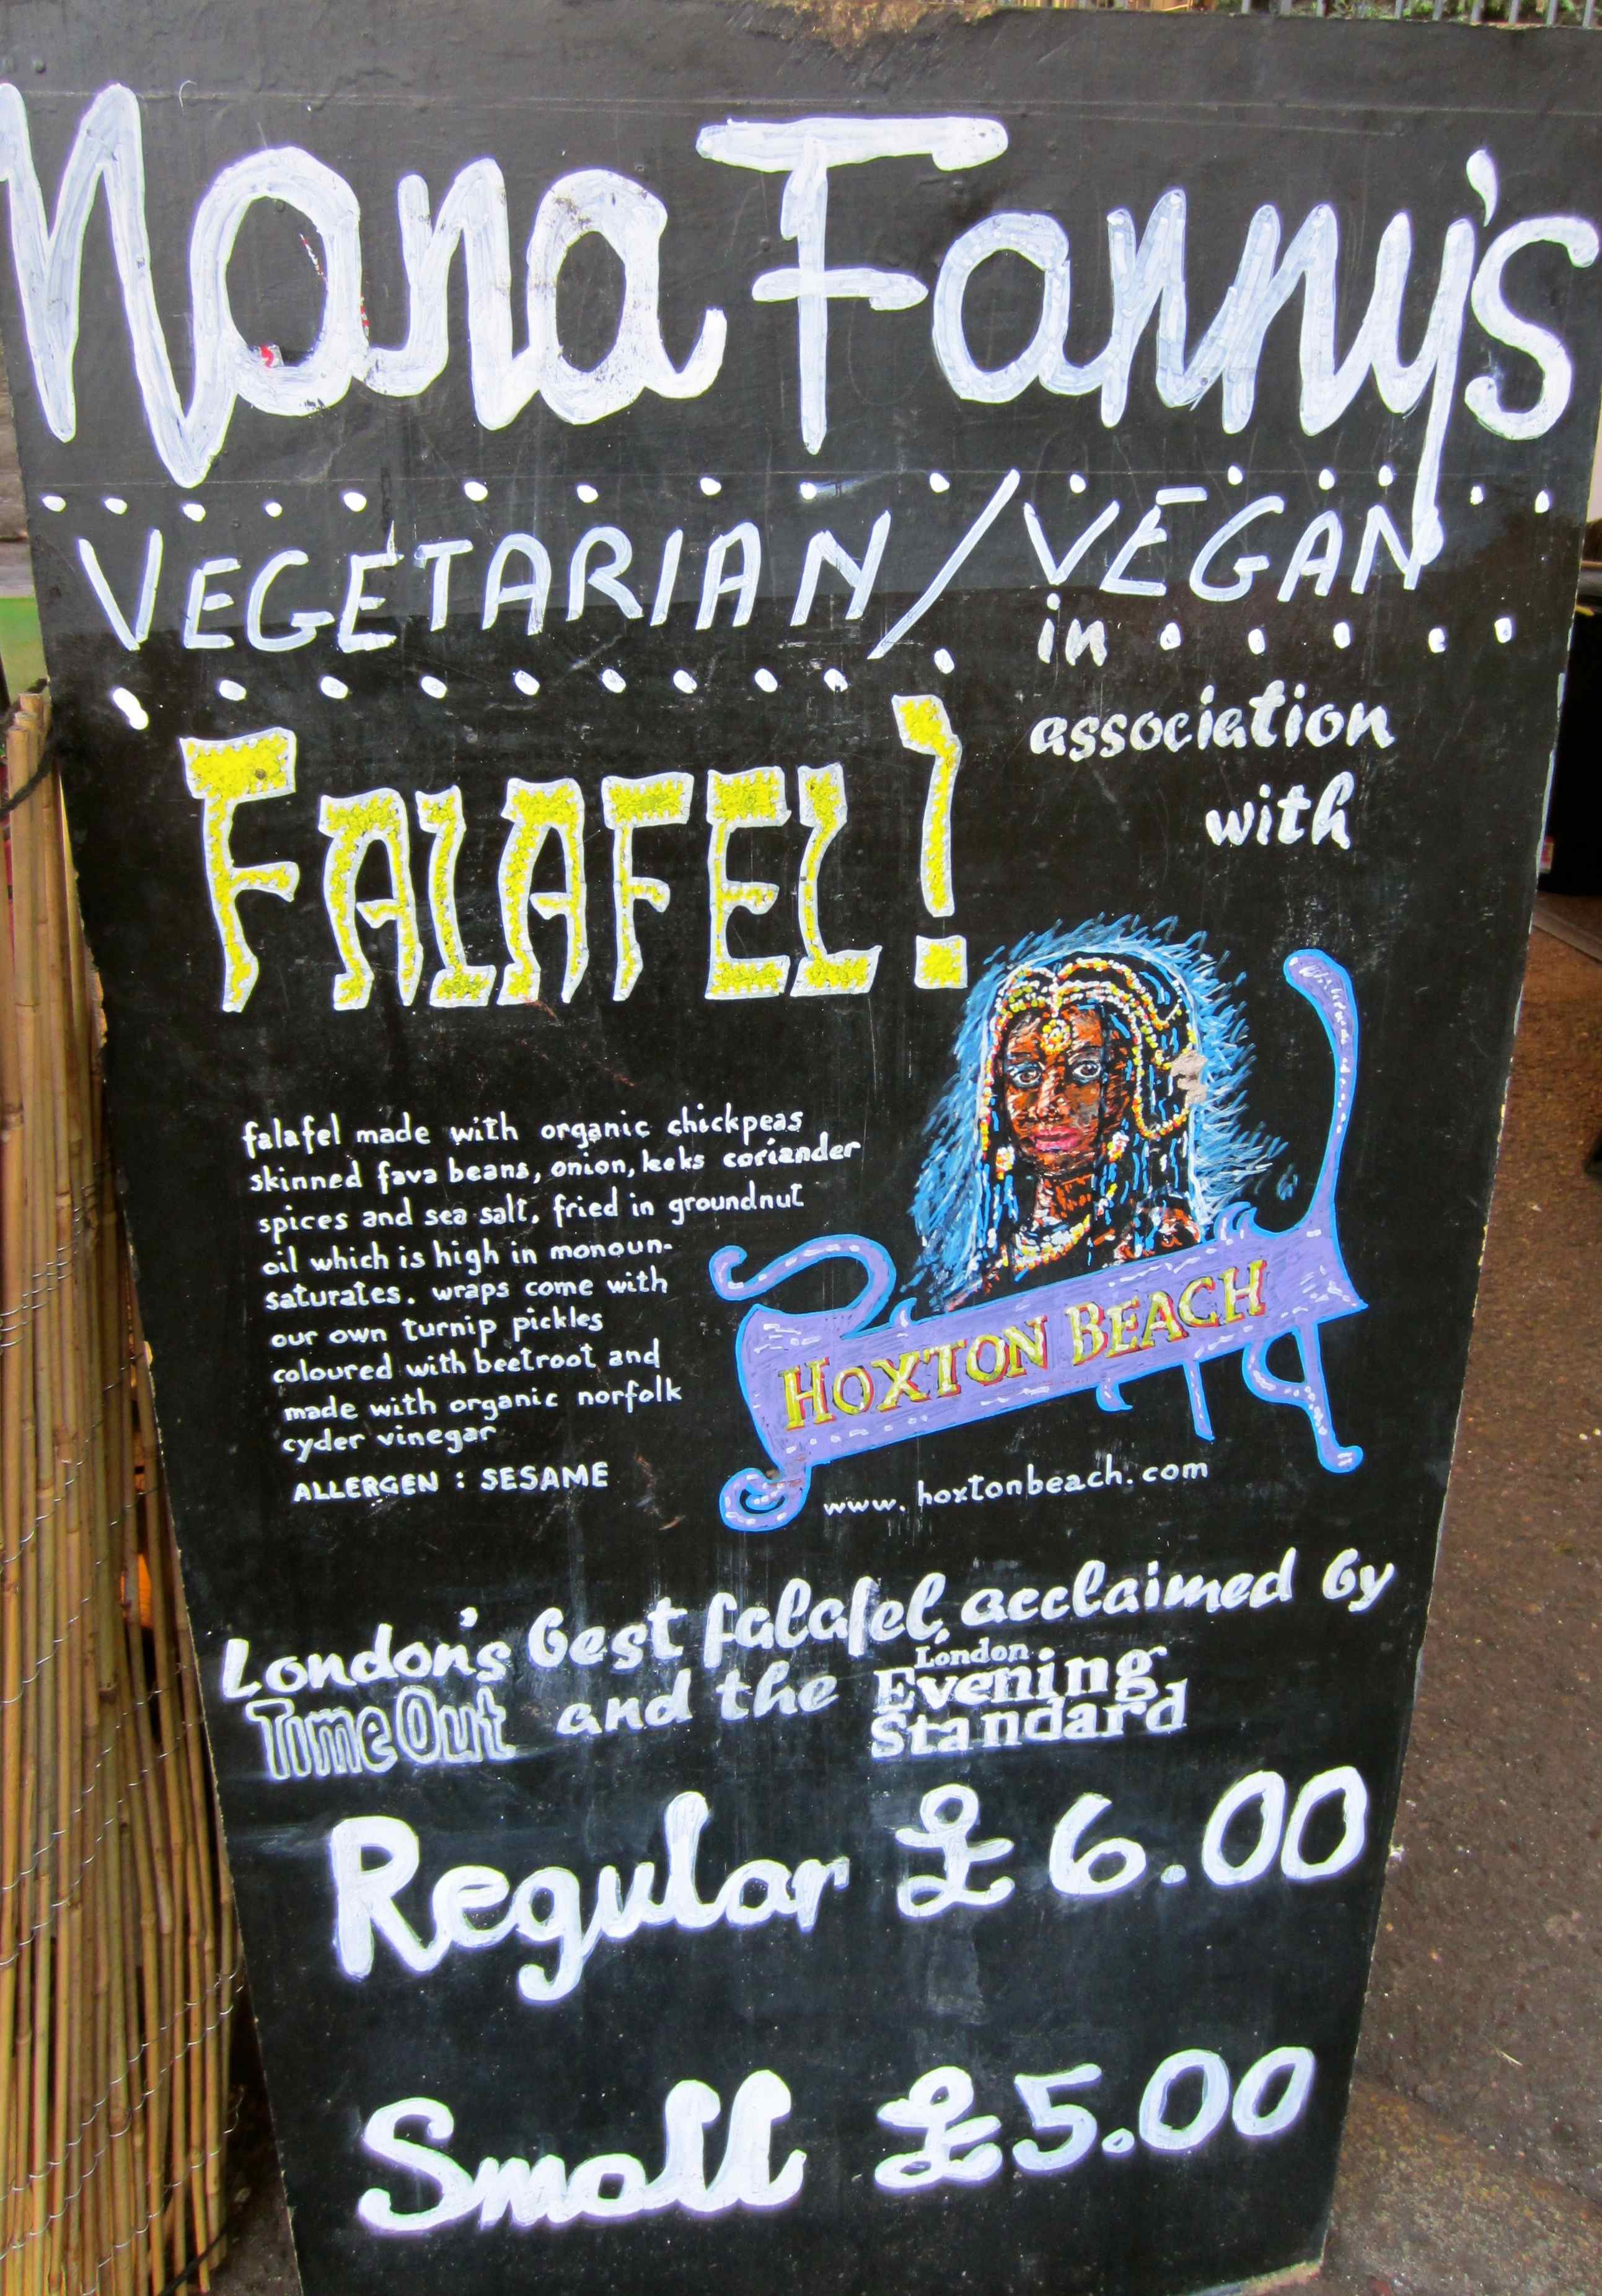 Nana Fanny's
VEGETARIAN/VEGAN
FALAFEL!
in
association
with
falafel made with organic chickpeas
skinned fava beans, onion, leeks coriander
spices and sea salt, fried in groundnut
oil which is high in monoun-
saturates. wraps come with
our own turnip pickles
coloured with beetroot and
made with organic norfolk
cyder vinegar
ALLERGEN : SESAME
HOXTON BEACH
www.hoxtonbeach.com
London's best falafel, acclaimed by
Time Out and the London Evening Standard
Regular £6.00
Small £5.00